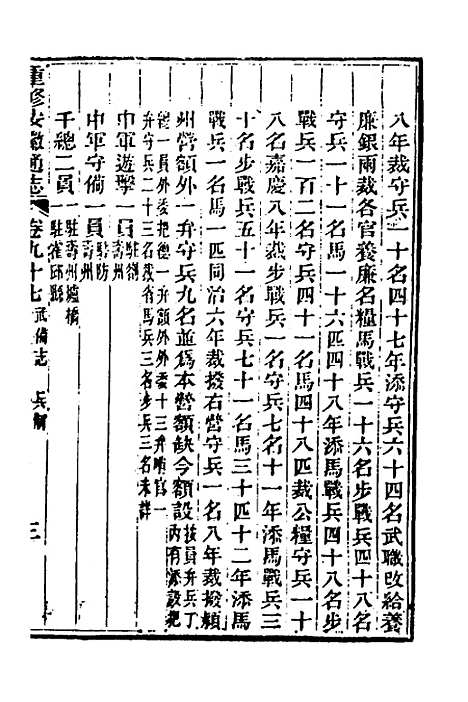 八年裁守兵一十名四十七年添守兵六十四名武職改給養
廉銀兩裁各官養廉名糧馬戰兵一十六名步戰兵四十八名
守兵一十一名馬一十六匹四十八年添馬戰兵四十八名步
戰兵一百二名守兵四十一名馬四十八匹裁公糧守兵一十
八名嘉慶八年裁步戰兵一名守兵七名十一年添馬戰兵三
十名步戰兵五十一名守兵七十一名馬三十匹十二年添馬
戰兵一名馬一匹同治六年裁撥右營守兵一名八年裁撥穎
州營額外一弁守兵九名並爲本營額缺今額設按員弁兵丁內有添設把
總一員外委把總一弁額外外委十三弁
弁守兵二十三名裁省馬兵三名步兵三名未詳
中軍遊擊一員
中軍守備一員
千總二員一駐壽州爐橋一駐霍邱縣
重修安徽通志 卷九十七 武備志 兵制 三